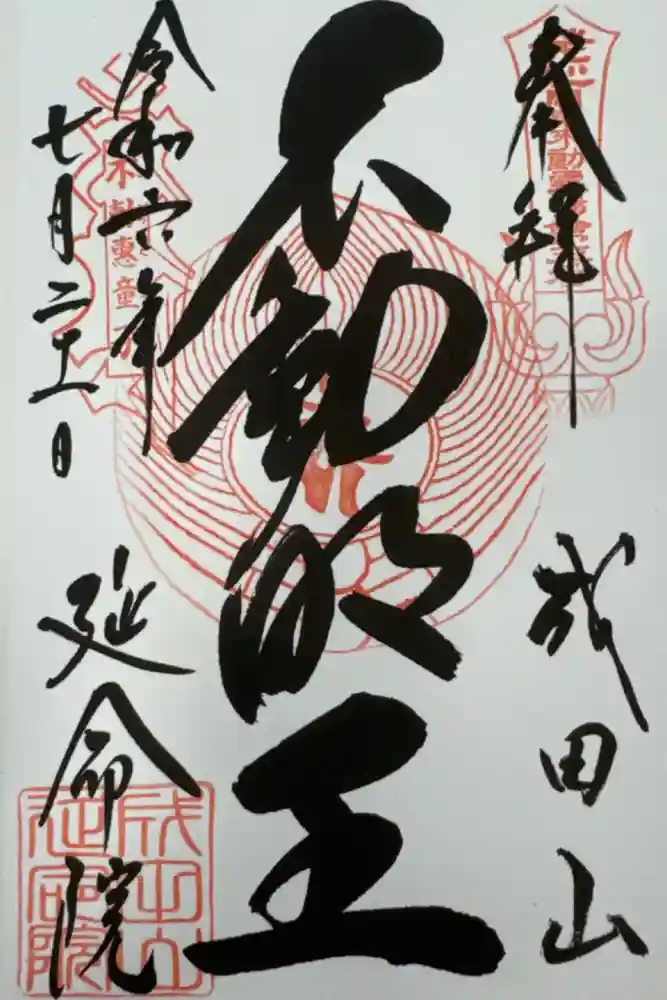 奉拝
成田山
不動明王
令和六年
七月二十一日
延命院
成田山
延命院